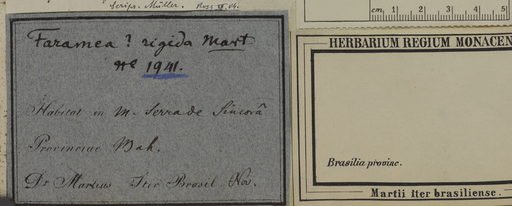 Scrips. Müller.
cm 1 2 3 4 5
Faramea ? rigida Mart
No 1941.
HERBARIUM REGIUM MONACEN
Habitat in M. Serra de Sincorâ
Provinciae Bah.
Brasilia provinc.
Dr Martius Iter Brasil Nov.
Martii Iter brasiliense.